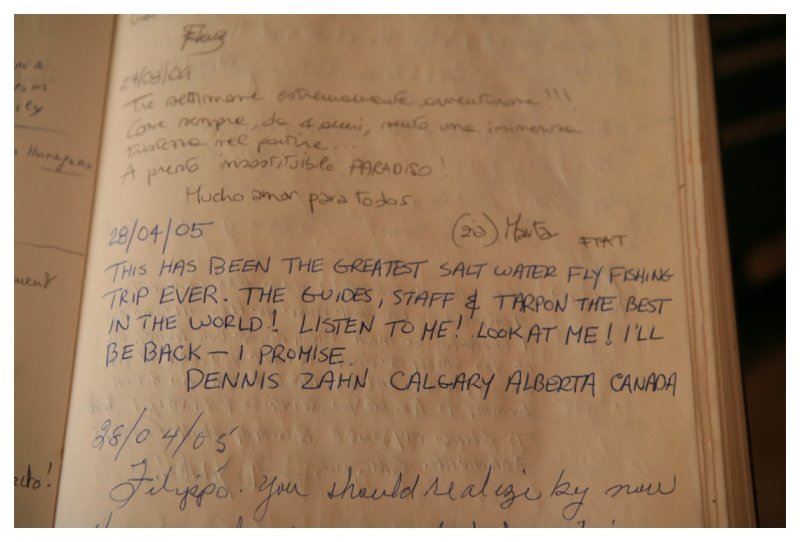 Tre settimane estremamente avventurose!!!
Come sempre, da 4 anni, sento una immensa
tristezza nel partire...
A presto insostituibile PARADISO!
Mucho amor para todos
28/04/05
(zia) Marta
THIS HAS BEEN THE GREATEST SALT WATER FLY FISHING
TRIP EVER. THE GUIDES, STAFF & TARPON THE BEST
IN THE WORLD! LISTEN TO ME! LOOK AT ME! I'LL
BE BACK — I PROMISE.
DENNIS ZAHN CALGARY ALBERTA CANADA
28/04/05
Filippo. You should realize by now